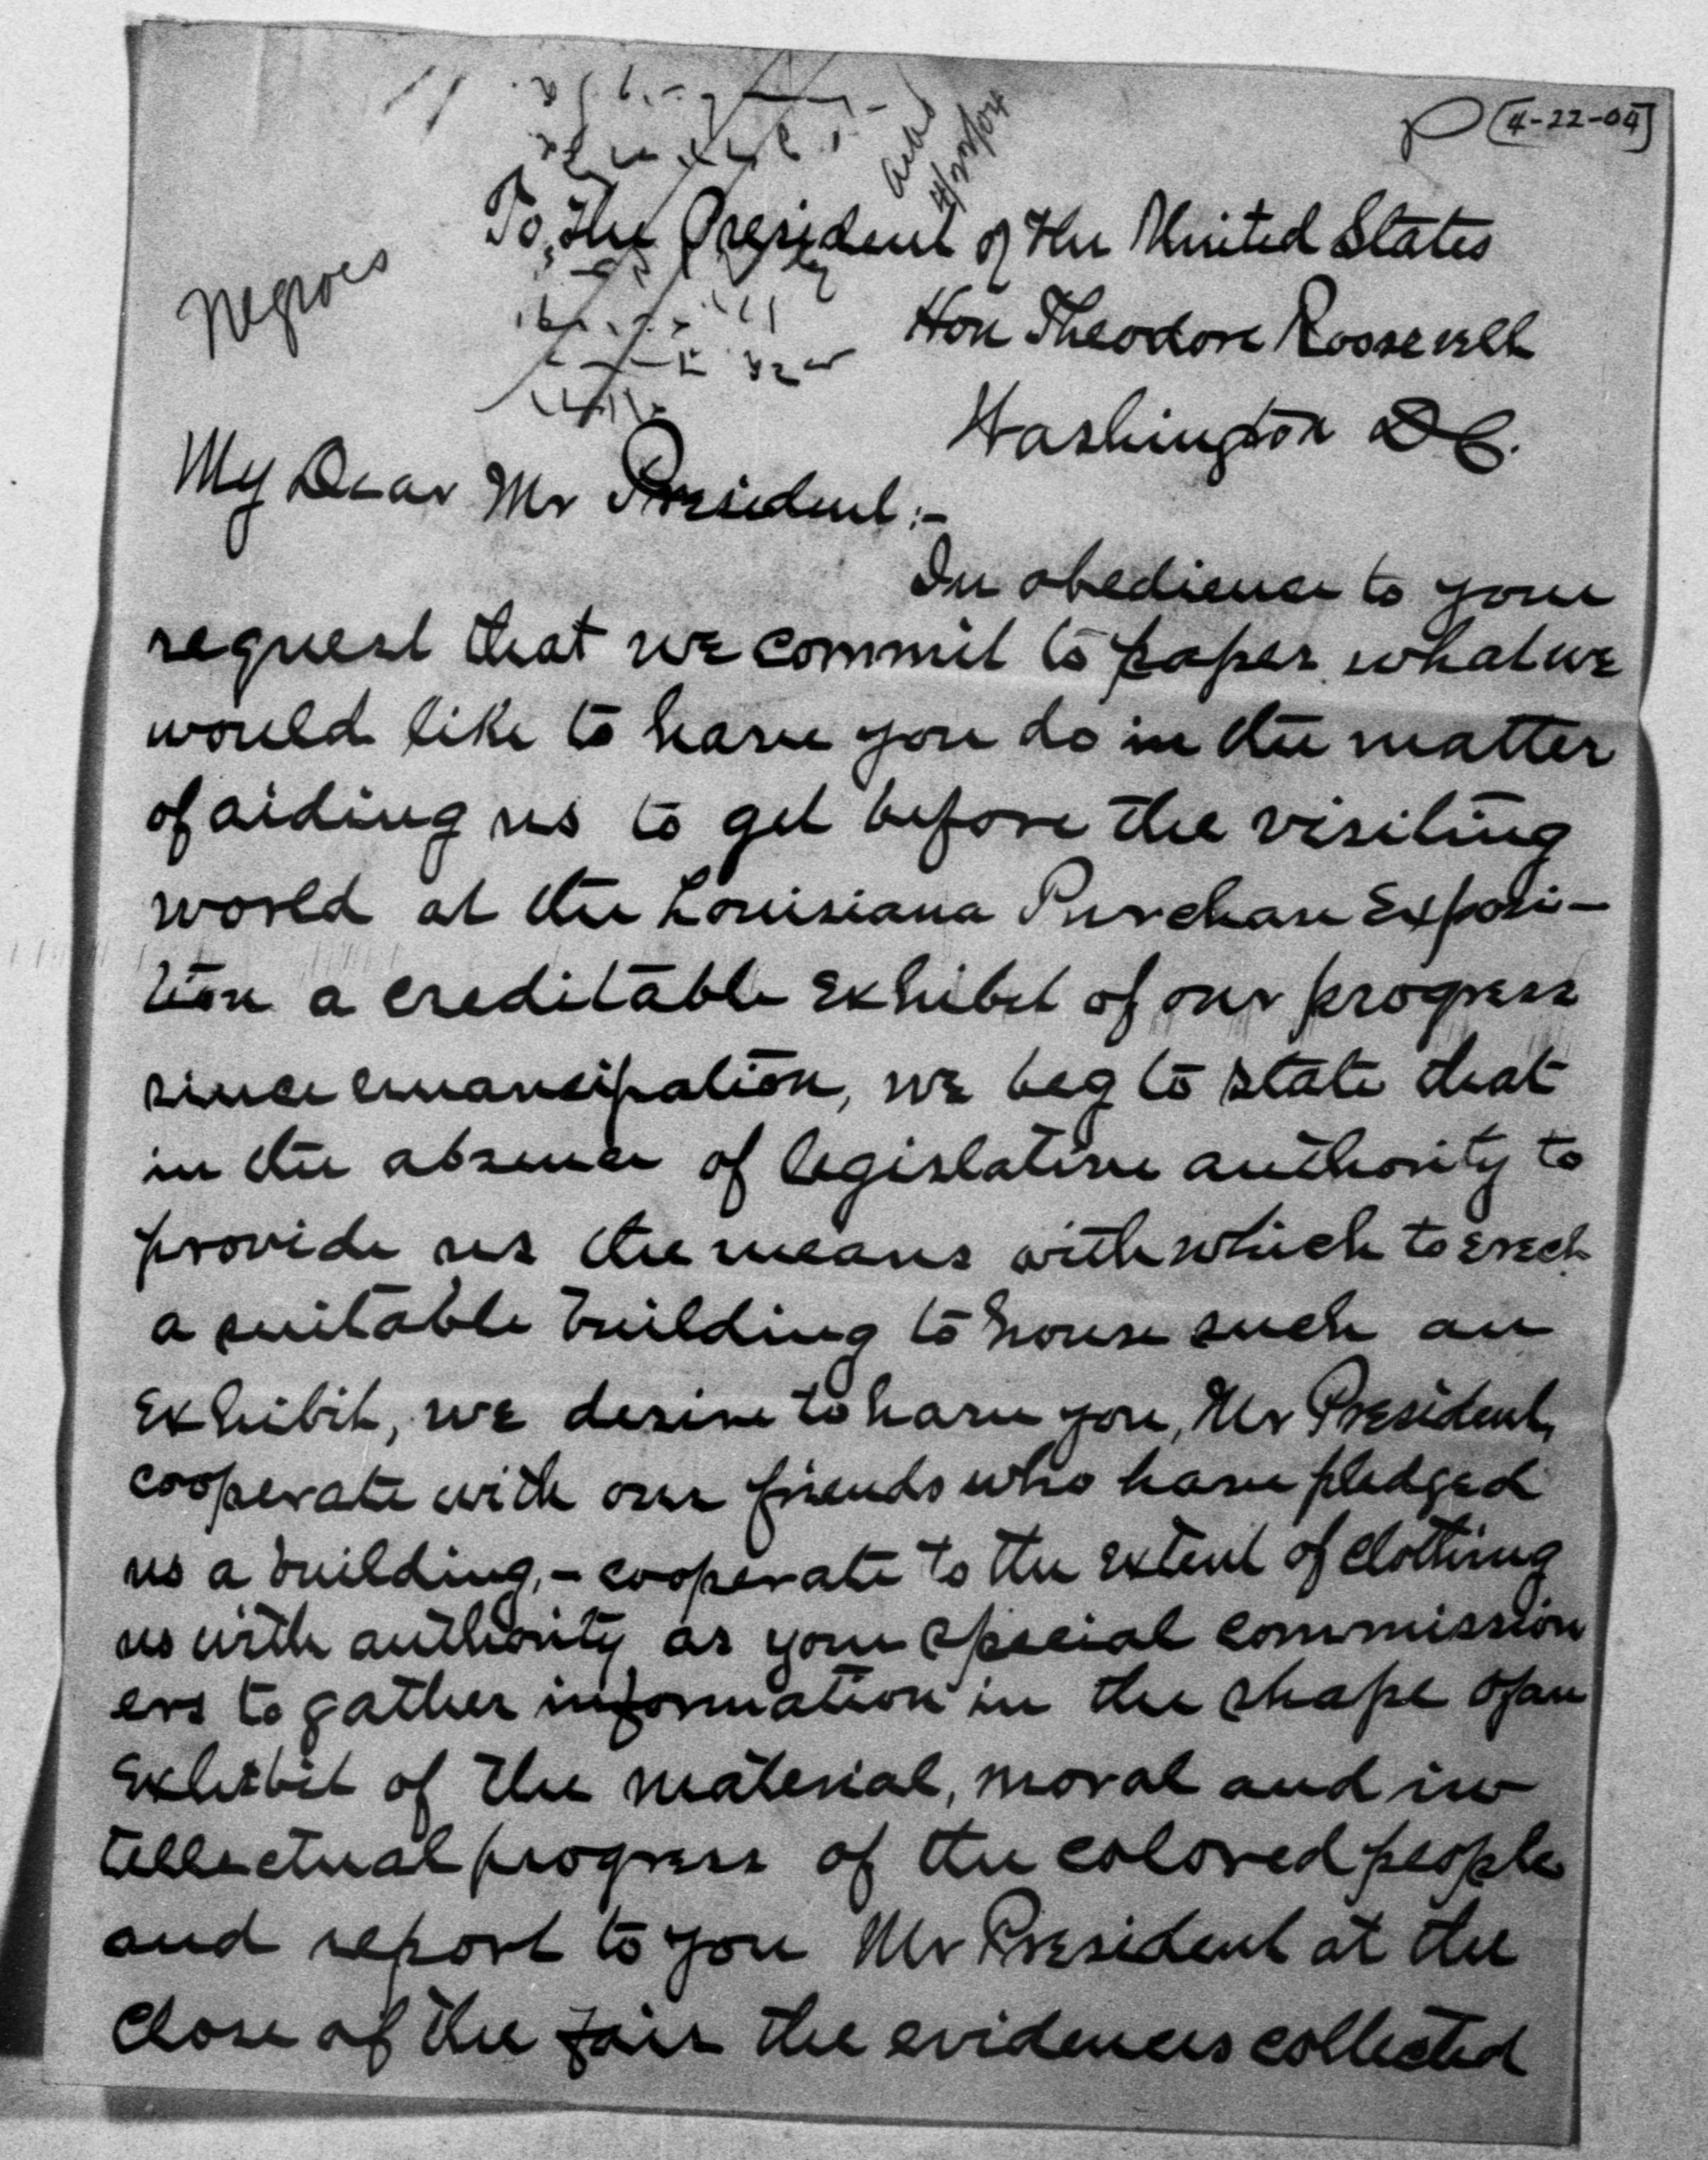 [4-22-04]
Ackd
4/22/04
Negroes
To the President of the United States
Hon Theodore Roosevelt
Washington DC.
My Dear Mr President:-
In obedience to your
request that we commit to paper what we
would like to have you do in the matter
of aiding us to get before the visiting
world at the Louisiana Purchase Exposi-
tion a creditable exhibit of our progress
since emancipation, we beg to state that
in the absence of legislative authority to
provide us the means with which to erect
a suitable building to house such an
exhibit, we desire to have you, Mr President,
cooperate with our friends who have pledged
us a building,- cooperate to the extent of clothing
us with authority as your special commission
ers to gather information in the shape of an
exhibit of the material, moral and in
tellectual progress of the colored people
and report to you Mr President at the
close of the fair the evidences collected